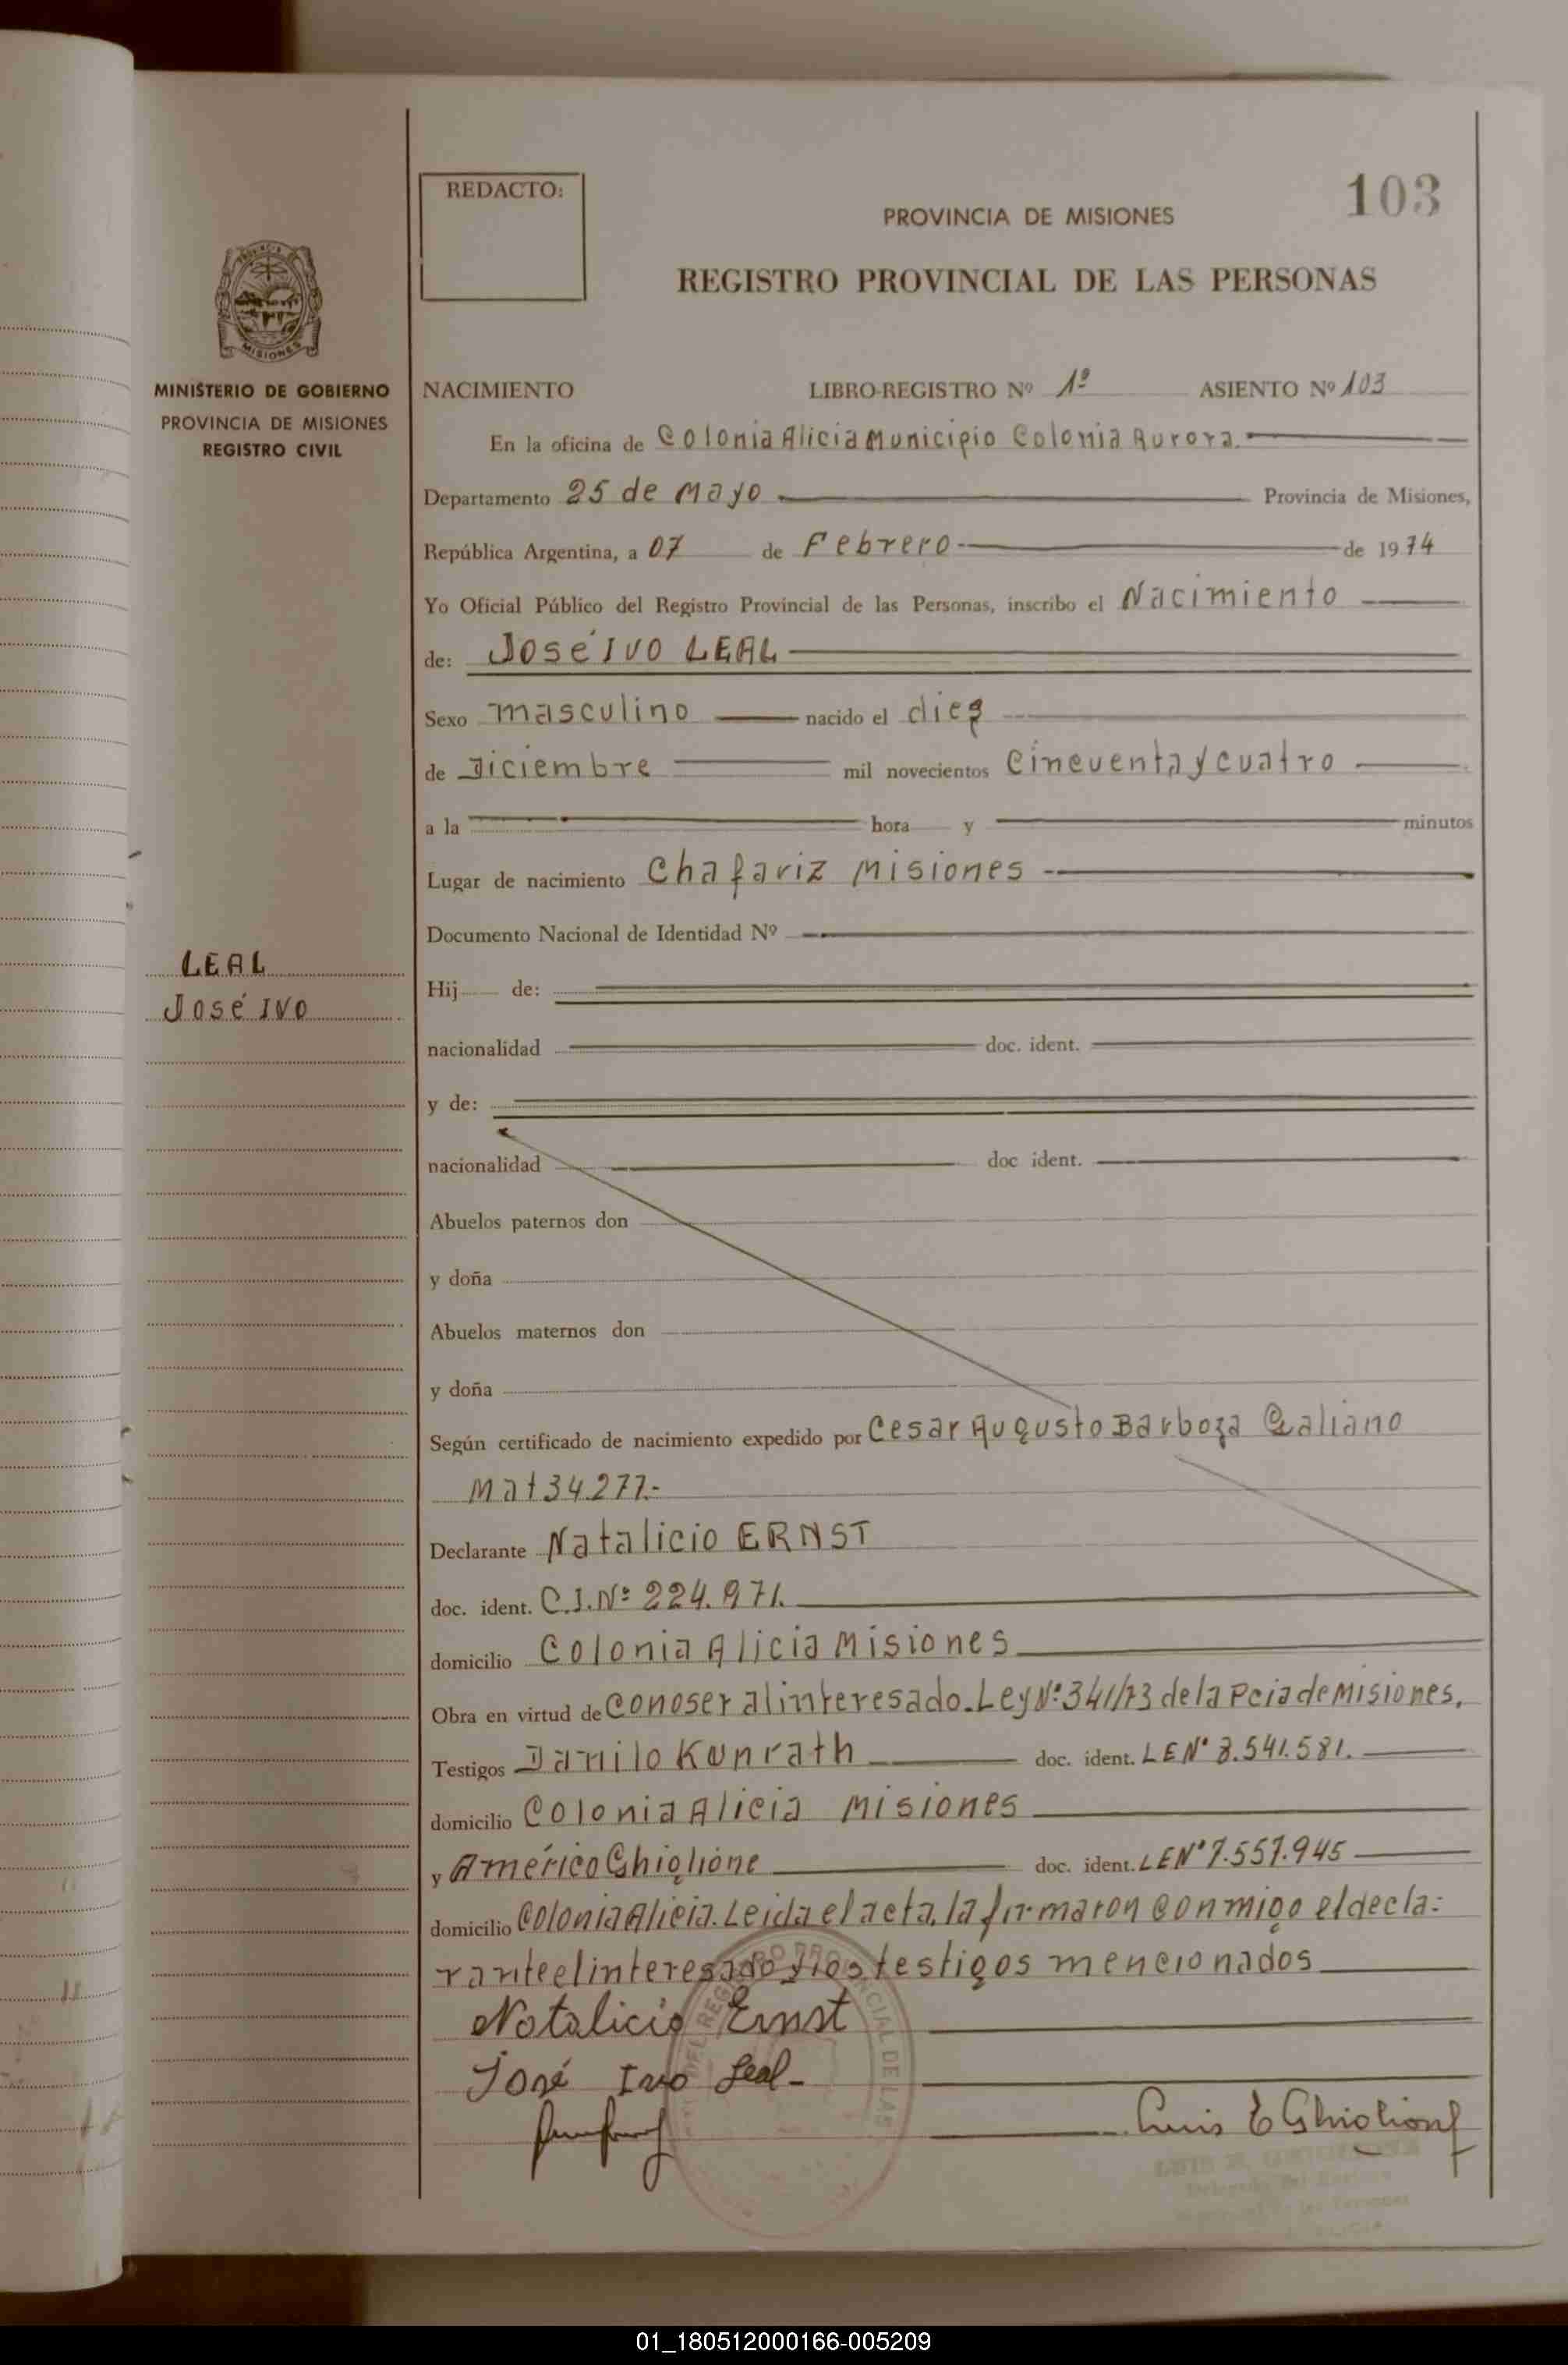 REDACTO:
103
PROVINCIA DE MISIONES
REGISTRO PROVINCIAL DE LAS PERSONAS
MISIONES
MINISTERIO DE GOBIERNO
PROVINCIA DE MISIONES
REGISTRO CIVIL
LEAL
José IVO
NACIMIENTO LIBRO-REGISTRO Nº 1º ASIENTO Nº 103
En la oficina de Colonia Alicia Municipio Colonia Aurora.
Departamento 25 de Mayo Provincia de Misiones,
República Argentina, a 07 de Febrero de 1974
Yo Oficial Público del Registro Provincial de las Personas, inscribo el Nacimiento
de: José IVO LEAL
Sexo masculino nacido el diez
de Diciembre mil novecientos Cincuenta y cuatro
a la hora y minutos
Lugar de nacimiento Chafariz Misiones
Documento Nacional de Identidad Nº
Hij de:
nacionalidad doc. ident.
y de:
nacionalidad doc ident.
Abuelos paternos don
y doña
Abuelos maternos don
y doña
Según certificado de nacimiento expedido por Cesar Augusto Barboza Galiano
Mat 34.277.-
Declarante Natalicio ERNST
doc. ident. C.I. Nº 224.971.
domicilio Colonia Alicia Misiones
Obra en virtud de Conoser al interesado. Ley Nº 341/73 de la Pcia de Misiones.
Testigos Danilo Kunrath doc. ident. LE Nº 8.541.581.
domicilio Colonia Alicia Misiones
y Américo Ghiglione doc. ident. LE Nº 7.557.945
domicilio Colonia Alicia. Leida el acta, la firmaron conmigo el decla=
rante el interesado y los testigos mencionados
Natalicio Ernst
José Ivo Leal-
Luis E Ghiglione
01_180512000166-005209